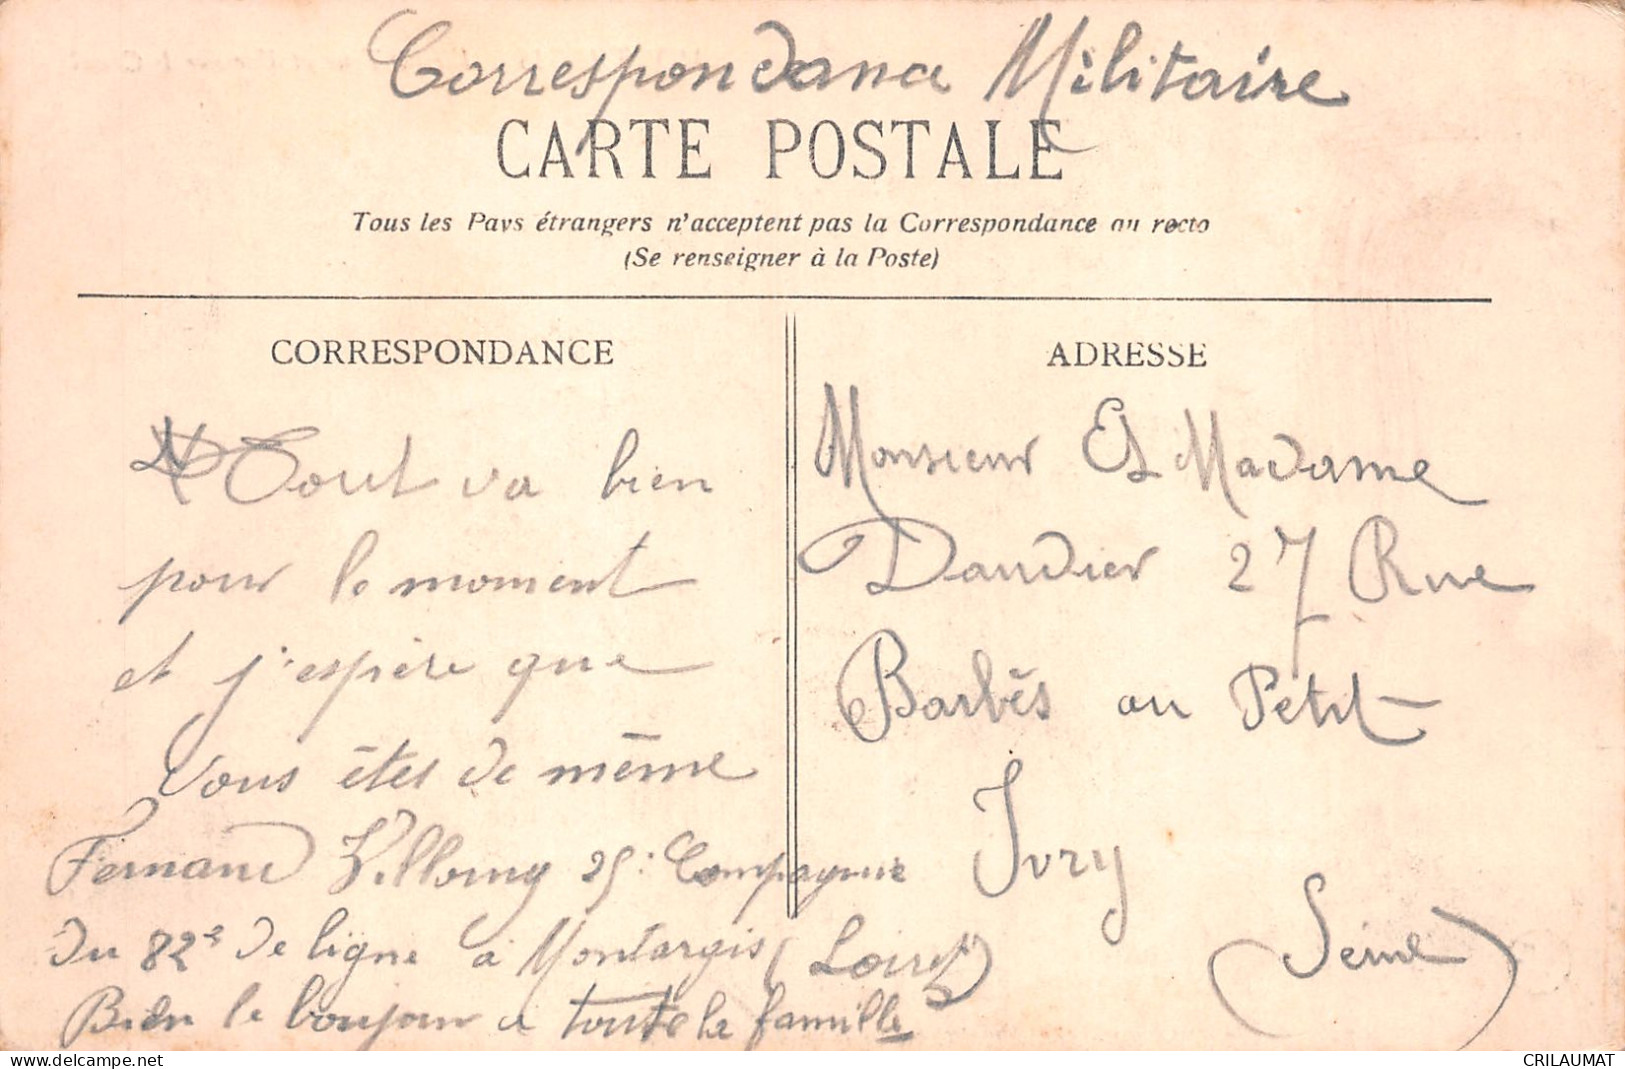 Correspondance Militaire
CARTE POSTALE
Tous les Pays étrangers n'acceptent pas la Correspondance au recto
(Se renseigner à la Poste)
CORRESPONDANCE
Tout va bien
pour le moment
et j'espère que
vous êtes de même
Fernand 25e Compagnie
du 82e de ligne à Montargis (Loiret)
Bien le bonjour a toute la famille
ADRESSE
Monsieur Et Madame
Daudier 27 Rue
Barbès au Petit
Ivry
(Seine)
delcampe.net
CRILAUMAT